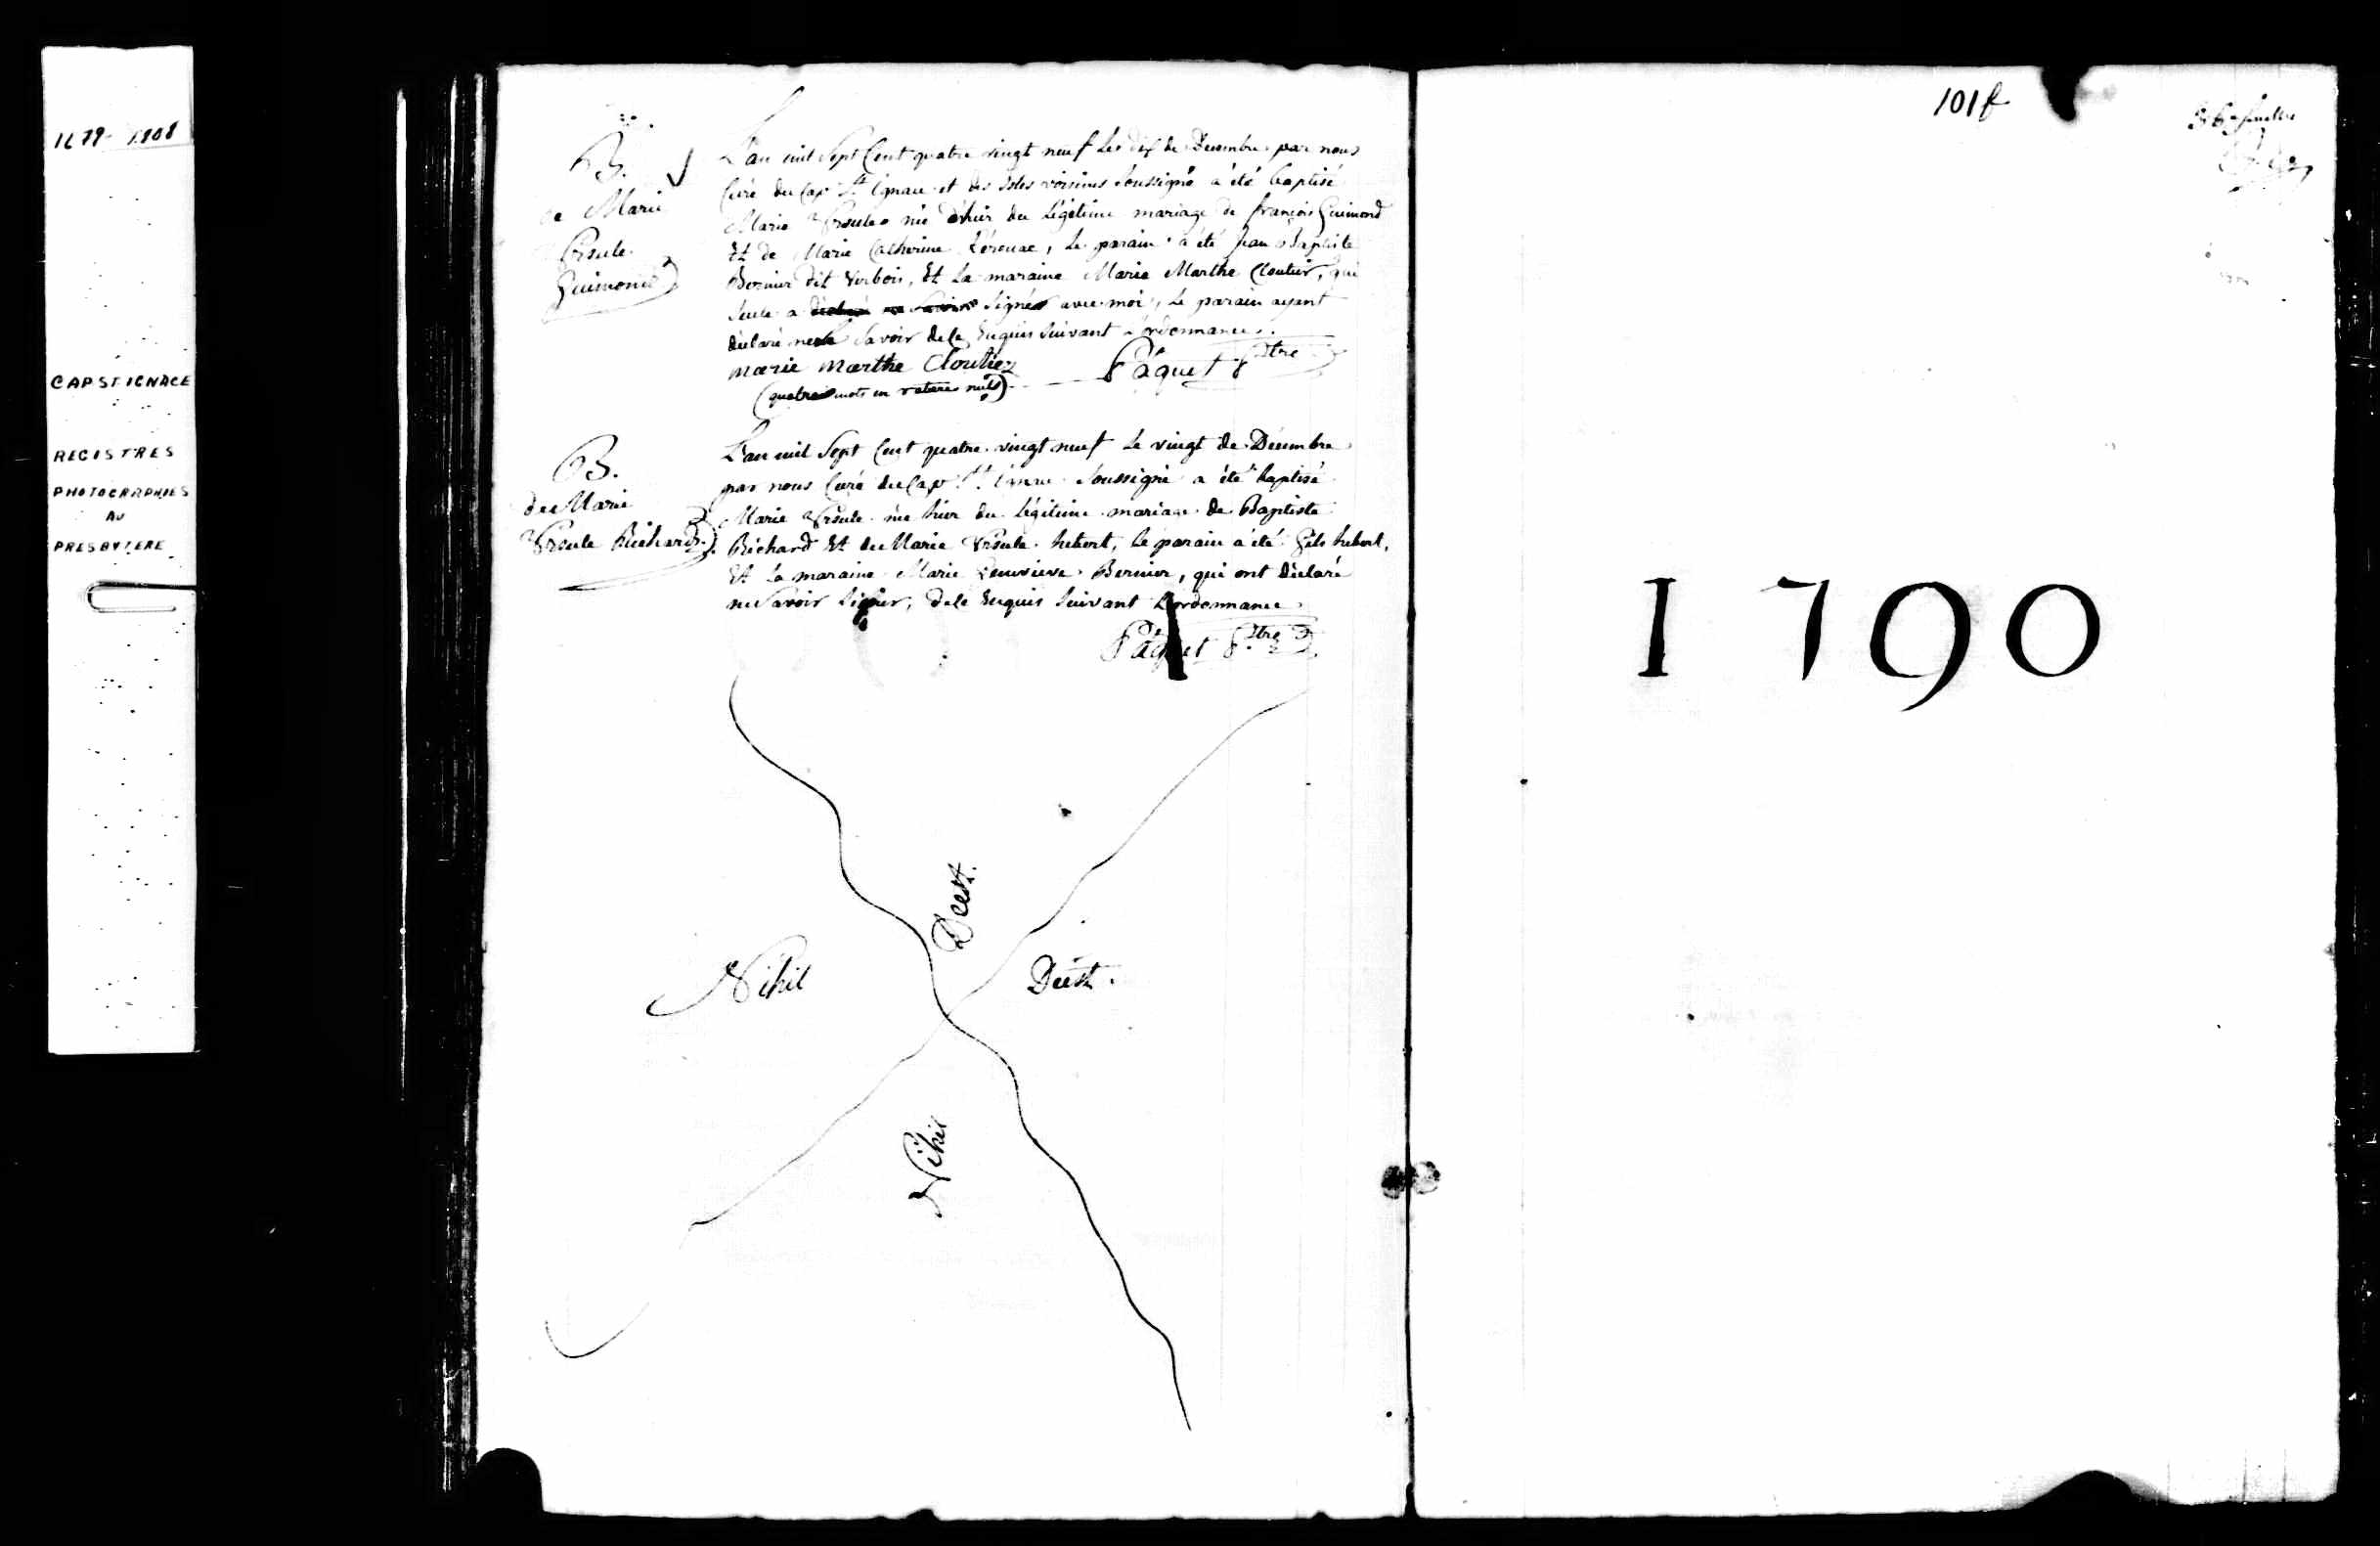 1679-1908
CAP ST IGNACE
REGISTRES
PHOTOGRAPHIES
AU
PRESBYTERE
B.
de Marie
Ursule
Guimond
L'an mil Sept Cent quatre vingt neuf le dix de Decembre par nous
Curé du Cap St. Ignace et des Isles voisines Soussigné a été baptisé
Marie Ursule née d'hier du Légitime mariage de françois Guimond
Et de Marie Catherine Lérouac, le parain a été Jean Baptiste
Bernier dit Verbois, Et la maraine Marie Marthe Cloutier, qui
Seule a signé avec moi, le parain ayant
déclaré ne le Savoir de ce Enquis Suivant L'ordonnance.
marie marthe Cloutier Pâquet Ptre
(quatre mots en rature nuls)
B.
de Marie
Ursule Richard.
L'an mil Sept Cent quatre vingt neuf le vingt de Décembre
par nous Curé du Cap St. Ignace Soussigné a été baptisé
Marie Ursule née hier du légitime mariage de Baptiste
Richard Et de Marie Ursule hebert, le parain a été hebert,
Et la maraine Marie Genevieve Bernier, qui ont déclaré
ne Savoir Signer, de ce Enquis Suivant L'ordonnance
Pâquet Ptre
Deest.
Nihil
Deest.
Nihil
101f
36e feuillet
1790